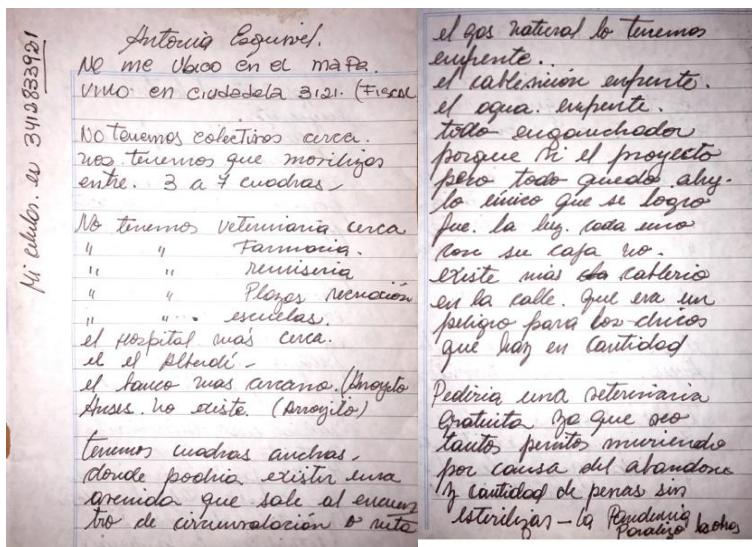 Mi celular. es 3412833921
Antonia Esquivel.
No me ubico en el mapa.
Vivo en ciudadela 3121. (Fiscal
No tenemos colectivos cerca.
nos tenemos que movilizar
entre. 3 a 7 cuadras
No tenemos veterinaria cerca
" " Farmacia.
" " remiseria
" " Plazas recreación
" " escuelas.
el Hospital más cerca.
es el Alberdi -
el banco mas cercano. (Arroyito
Anses. no existe. (Arroyito)
tenemos cuadras anchas.
donde podria existir una
avenida que sale al encuen
tro de circunvalación o ruta
el gas natural lo tenemos
enfrente..
el cablevisión enfrente.
el agua. enfrente.
todo enganchador
porque si el proyecto
pero todo quedo ahy.
lo único que se logro
fue. la luz. cada uno
con su caja no.
existe más cablerio
en la calle. que era un
peligro para los chicos
que hay en cantidad
Pediria una veterinaria
gratuita ya que veo
tantos perritos muriendo
por causa del abandono
y cantidad de perras sin
esterilizar - la Pandemia
Paralizo las obras